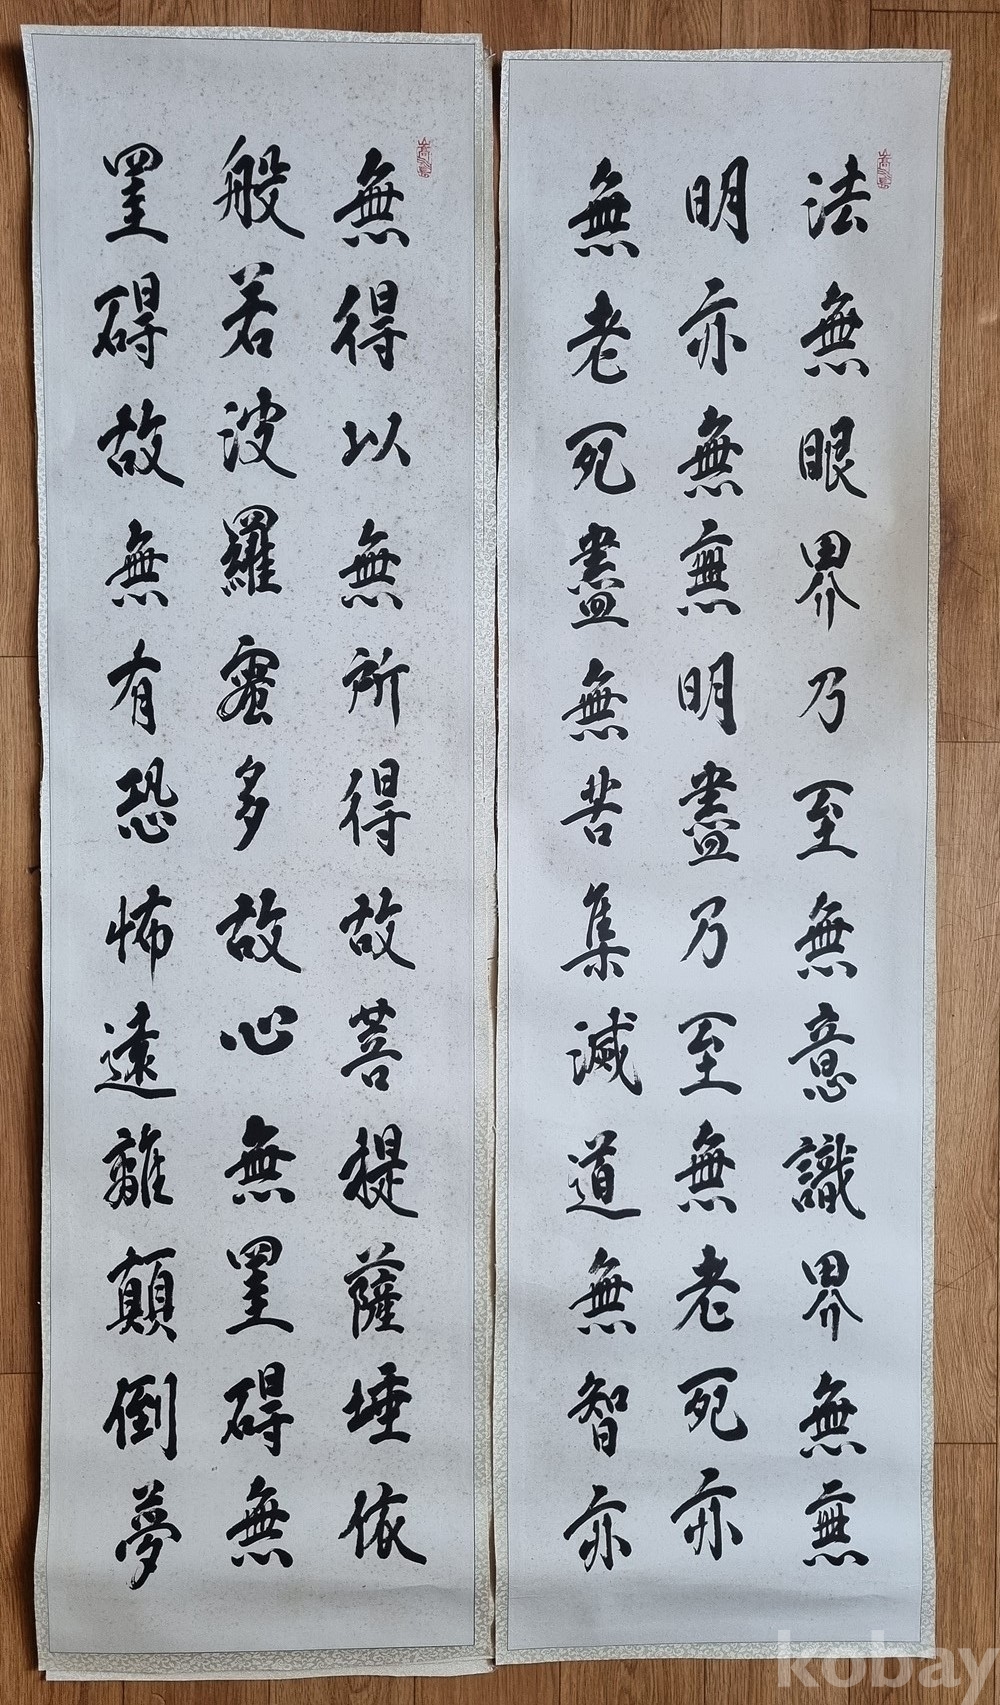 法無眼界乃至無意識界無無
明亦無無明盡乃至無老死亦
無老死盡無苦集滅道無智亦
無得以無所得故菩提薩埵依
般若波羅蜜多故心無罣碍無
罣碍故無有恐怖遠離顛倒夢
kobay